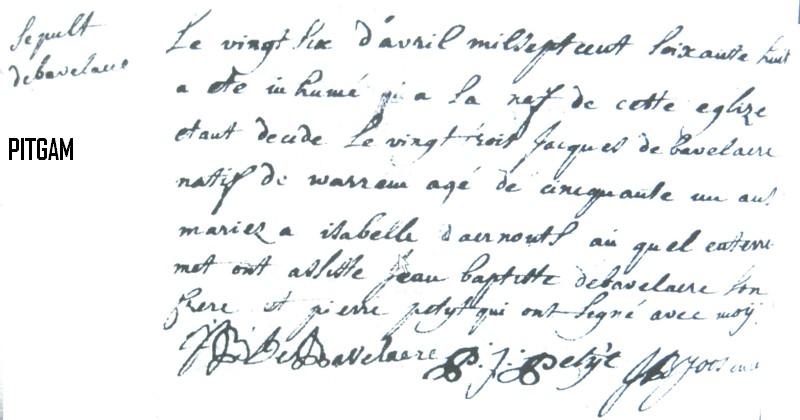 Sepult
debavelaere
PITGAM
Le vingt six d'avril mil sept cent soixante huit
a ete inhumé a la nef de cette eglize
etant decede le vingt trois Jacques debavelaere
natif de warrem agé de cincquante un ans
mariez a isabelle daernouts au quel enterre
met ont assiste jean baptiste debavelaere son
frere et pierre petyt qui ont signé avec moy
J B De Bavelaere P. J. Petyt